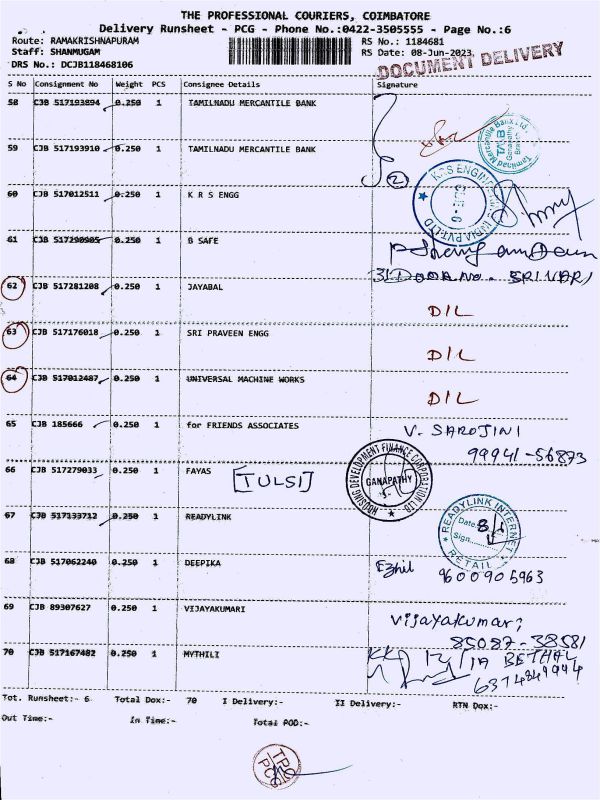 THE PROFESSIONAL COURIERS, COIMBATORE
Delivery Runsheet - PCG - Phone No.:0422-3505555 - Page No.:6
Route: RAMAKRISHNAPURAM RS No.: 1184681
Staff: SHANMUGAM RS Date: 08-Jun-2023
DRS No.: DCJB118468106 DOCUMENT DELIVERY
S No Consignment No Weight PCS Consignee Details Signature
58 CJB 517193894 0.250 1 TAMILNADU MERCANTILE BANK
Tamilnad Mercantile Bank Ltd. Ganapathy Branch
59 CJB 517193910 0.250 1 TAMILNADU MERCANTILE BANK
2
60 CJB 517012511 0.250 1 K R S ENGG
61 CJB 517290905 0.250 1 B SAFE
SRIVARI
62 CJB 517281208 0.250 1 JAYABAL
D/L
63 CJB 517176018 0.250 1 SRI PRAVEEN ENGG
D/L
64 CJB 517012487 0.250 1 UNIVERSAL MACHINE WORKS
D/L
65 CJB 185666 0.250 1 for FRIENDS ASSOCIATES V. SAROJINI
99941-56873
66 CJB 517279033 0.250 1 FAYAS [TULSI]
HOUSING DEVELOPMENT FINANCE CORPORATION LTD GANAPATHY
67 CJB 517133712 0.250 1 READYLINK
READYLINK INTERNET
Date: 8/
Sign
RETAIL
68 CJB 517062240 0.250 1 DEEPIKA Ezhil
9600905963
69 CJB 89307627 0.250 1 VIJAYAKUMARI Vijayakumari
85087-38581
70 CJB 517167482 0.250 1 MYTHILI
BETHAL
6374849944
Tot. Runsheet:- 6 Total Dox:- 70 I Delivery:- II Delivery:- RTN Dox:-
Out Time:- In Time:- Total POD:-
TPC